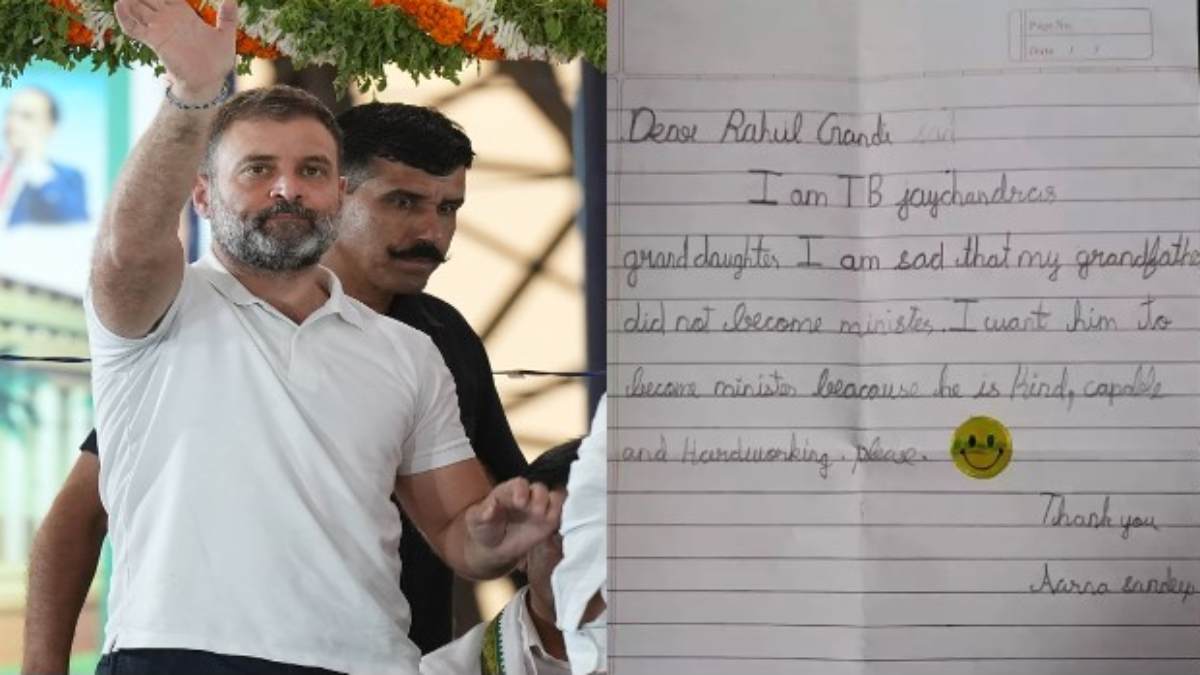 Page No.
Date / /
Dear Rahul Grandi sad
I am TB jaychandras
granddaughter I am sad that my grandfathe
did not become minister. I want him to
become minister beacause he is Kind, capable
and Hardworking. please.
Thank you
Aarna sandeep